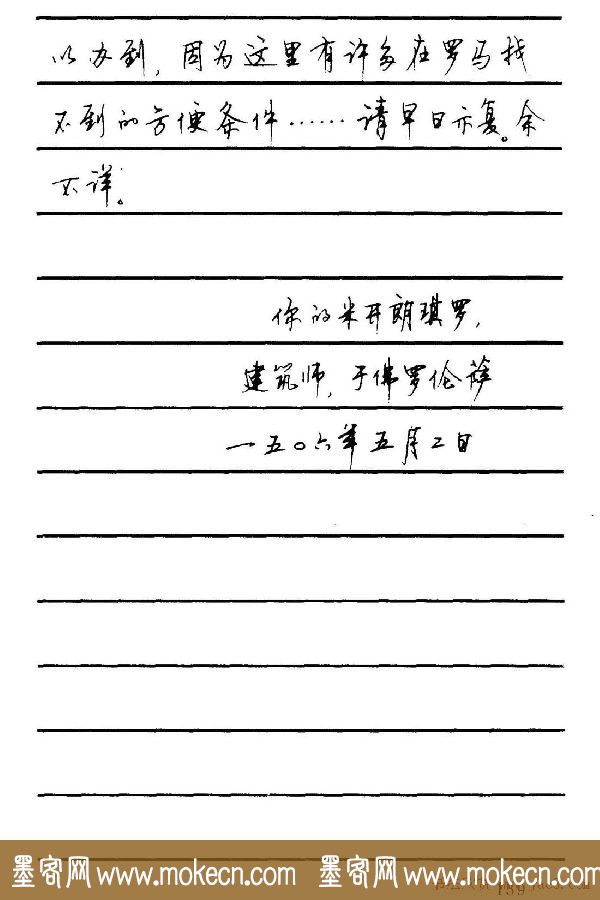 以办到，因为这里有许多在罗马找
不到的方便条件……请早日示复。余
不详。
你的米开朗琪罗，
建筑师，于佛罗伦萨
一五〇六年五月二日
墨客网www.mokecn.com 墨客网www.mokecn.com